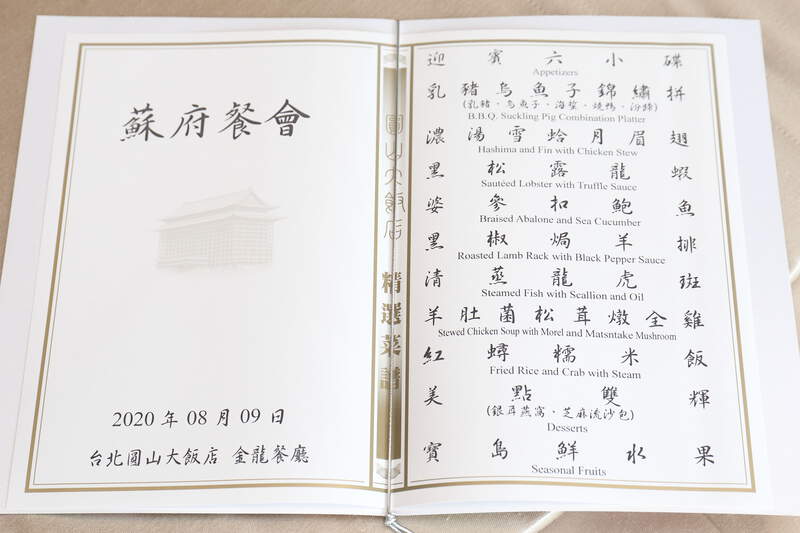 蘇府餐會
2020 年 08 月 09 日
台北圓山大飯店 金龍餐廳
圓山大飯店 精選菜譜
迎賓六小碟
Appetizers
乳豬烏魚子錦繡拼
(乳豬、烏魚子、海蜇、燒鴨、油雞)
B.B.Q. Suckling Pig Combination Platter
濃湯雪蛤月眉翅
Hashima and Fin with Chicken Stew
黑松露龍蝦
Sautéed Lobster with Truffle Sauce
婆參扣鮑魚
Braised Abalone and Sea Cucumber
黑椒焗羊排
Roasted Lamb Rack with Black Pepper Sauce
清蒸龍虎斑
Steamed Fish with Scallion and Oil
羊肚菌松茸燉全雞
Stewed Chicken Soup with Morel and Matsntake Mushroom
紅蟳糯米飯
Fried Rice and Crab with Steam
美點雙輝
(銀耳燕窩、芝麻流沙包)
Desserts
寶島鮮水果
Seasonal Fruits